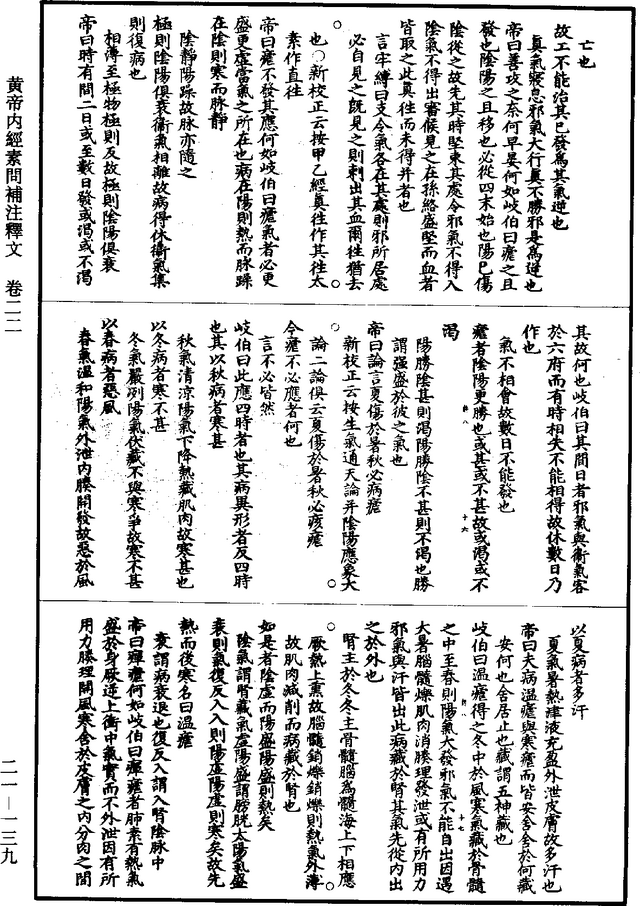 黄帝内經素問補注釋文　卷二二
二一—一三九
亡也
故工不能治其已發爲其氣逆也
真氣寢息邪氣大行真不勝邪是爲逆也
帝曰善攻之奈何早晏何如岐伯曰瘧之且
發也陰陽之且移也必從四末始也陽已傷
陰從之故先其時堅束其處令邪氣不得入
陰氣不得出審候見之在孫絡盛堅而血者
皆取之此真往而未得并者也
言牢縛四支令氣各在其處則邪所居處
必自見之旣見之則刺出其血爾往猶去
也○新校正云按甲乙經真往作其往太
素作直往
帝曰瘧不發其應何如岐伯曰瘧氣者必更
盛更虛當氣之所在也病在陽則熱而脉躁
在陰則寒而脉靜
陰靜陽躁故脉亦隨之
極則陰陽俱衰衞氣相離故病得休衞氣集
則復病也
相薄至極物極則反故極則陰陽俱衰
帝曰時有間二日或至數日發或渴或不渴
其故何也岐伯曰其間日者邪氣與衞氣客
於六府而有時相失不能相得故休數日乃
作也
氣不相會故數日不能發也
瘧者陰陽更勝也或甚或不甚故或渴或不
渴
陽勝陰甚則渴陽勝陰不甚則不渴也勝
謂强盛於彼之氣也
帝曰論言夏傷於暑秋必病瘧
新校正云按生氣通天論并陰陽應象大
論二論俱云夏傷於暑秋必痎瘧
今瘧不必應者何也
言不必皆然
岐伯曰此應四時者也其病異形者反四時
也其以秋病者寒甚
秋氣清涼陽氣下降熱藏肌肉故寒甚也
以冬病者寒不甚
冬氣嚴冽陽氣伏藏不與寒爭故寒不甚
以春病者惡風
春氣溫和陽氣外泄肉腠開發故惡於風
以夏病者多汗
夏氣暑熱津液充盈外泄皮膚故多汗也
帝曰夫病溫瘧與寒瘧而皆安舍舍於何藏
安何也舍居止也藏謂五神藏也
岐伯曰溫瘧得之冬中於風寒氣藏於骨髓
之中至春則陽氣大發邪氣不能自出因遇
大暑腦髓爍肌肉消腠理發泄或有所用力
邪氣與汗皆出此病藏於腎其氣先從内出
之於外也
腎主於冬冬主骨髓腦爲髓海上下相應
厥熱上熏故腦髓銷爍銷爍則熱氣外薄
故肌肉減削而病藏於腎也
如是者陰虛而陽盛陽盛則熱矣
陰氣謂腎藏氣虛陽盛謂膀胱太陽氣盛
衰則氣復反入入則陽虛陽虛則寒矣故先
熱而後寒名曰溫瘧
衰謂病衰退也復反入謂入腎陰脉中
帝曰癉瘧何如岐伯曰癉瘧者肺素有熱氣
盛於身厥逆上衝中氣實而不外泄因有所
用力腠理開風寒舍於皮膚之内分肉之間